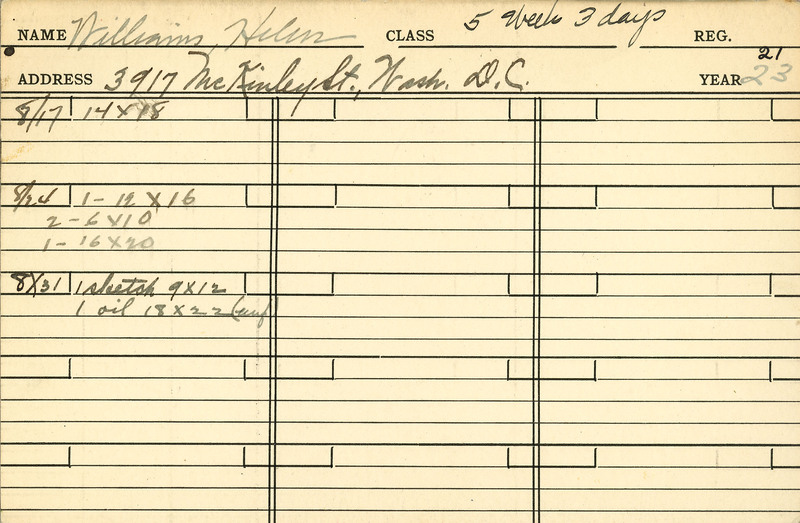 NAME Williams, Helen CLASS 5 Week 3 days REG.
21
ADDRESS 3917 McKinley St., Wash. D.C. YEAR 23
8/17 14 x 18
8/24 1 - 12 x 16
2 - 6 x 10
1 - 16 x 20
8/31 1 sketch 9 x 12
1 oil 18 x 22 (unf)